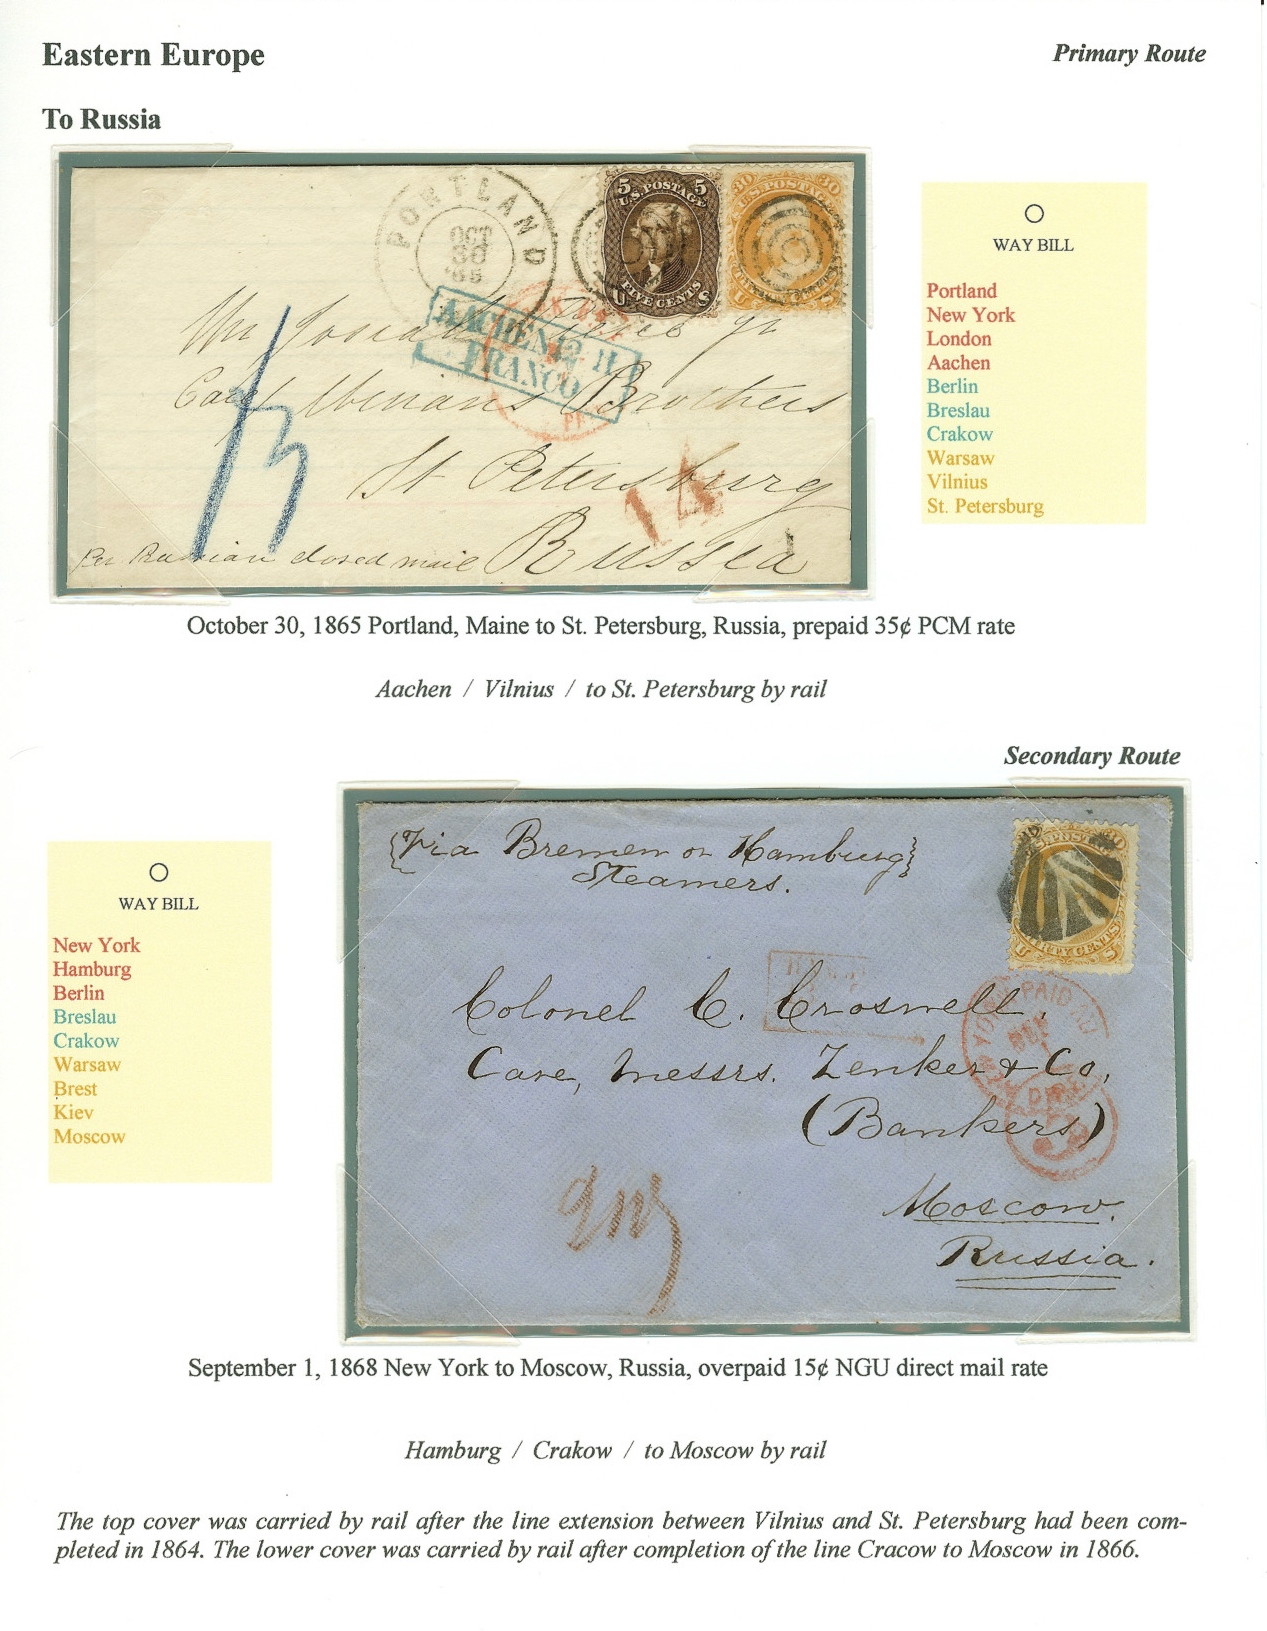 Eastern Europe
Primary Route
To Russia
PORTLAND
OCT
30
'65
5 U.S. POSTAGE 5
U FIVE CENTS S
30 U.S. POSTAGE 30
AACHEN 12 11
FRANCO
Mr Josiah
Care Brothers
St Petersburg
Russia
closed mail
14
WAY BILL
Portland
New York
London
Aachen
Berlin
Breslau
Crakow
Warsaw
Vilnius
St. Petersburg
October 30, 1865 Portland, Maine to St. Petersburg, Russia, prepaid 35¢ PCM rate
Aachen / Vilnius / to St. Petersburg by rail
Secondary Route
WAY BILL
New York
Hamburg
Berlin
Breslau
Crakow
Warsaw
Brest
Kiev
Moscow
{Via Bremen or Hamburg}
Steamers.
THIRTY CENTS
U S
PAID ALL
SEP
Colonel C. Croswell.
Care, Messrs. Zenker & Co,
(Bankers)
Moscow.
Russia.
September 1, 1868 New York to Moscow, Russia, overpaid 15¢ NGU direct mail rate
Hamburg / Crakow / to Moscow by rail
The top cover was carried by rail after the line extension between Vilnius and St. Petersburg had been com-
pleted in 1864. The lower cover was carried by rail after completion of the line Cracow to Moscow in 1866.